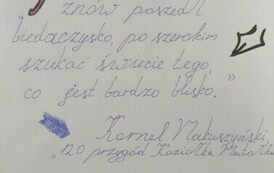 znów poszedł
biedaczysko, po szerokim
szukać świecie tego,
co jest bardzo blisko."
Kornel Makuszyński
"120 przygód Koziołka Matołka